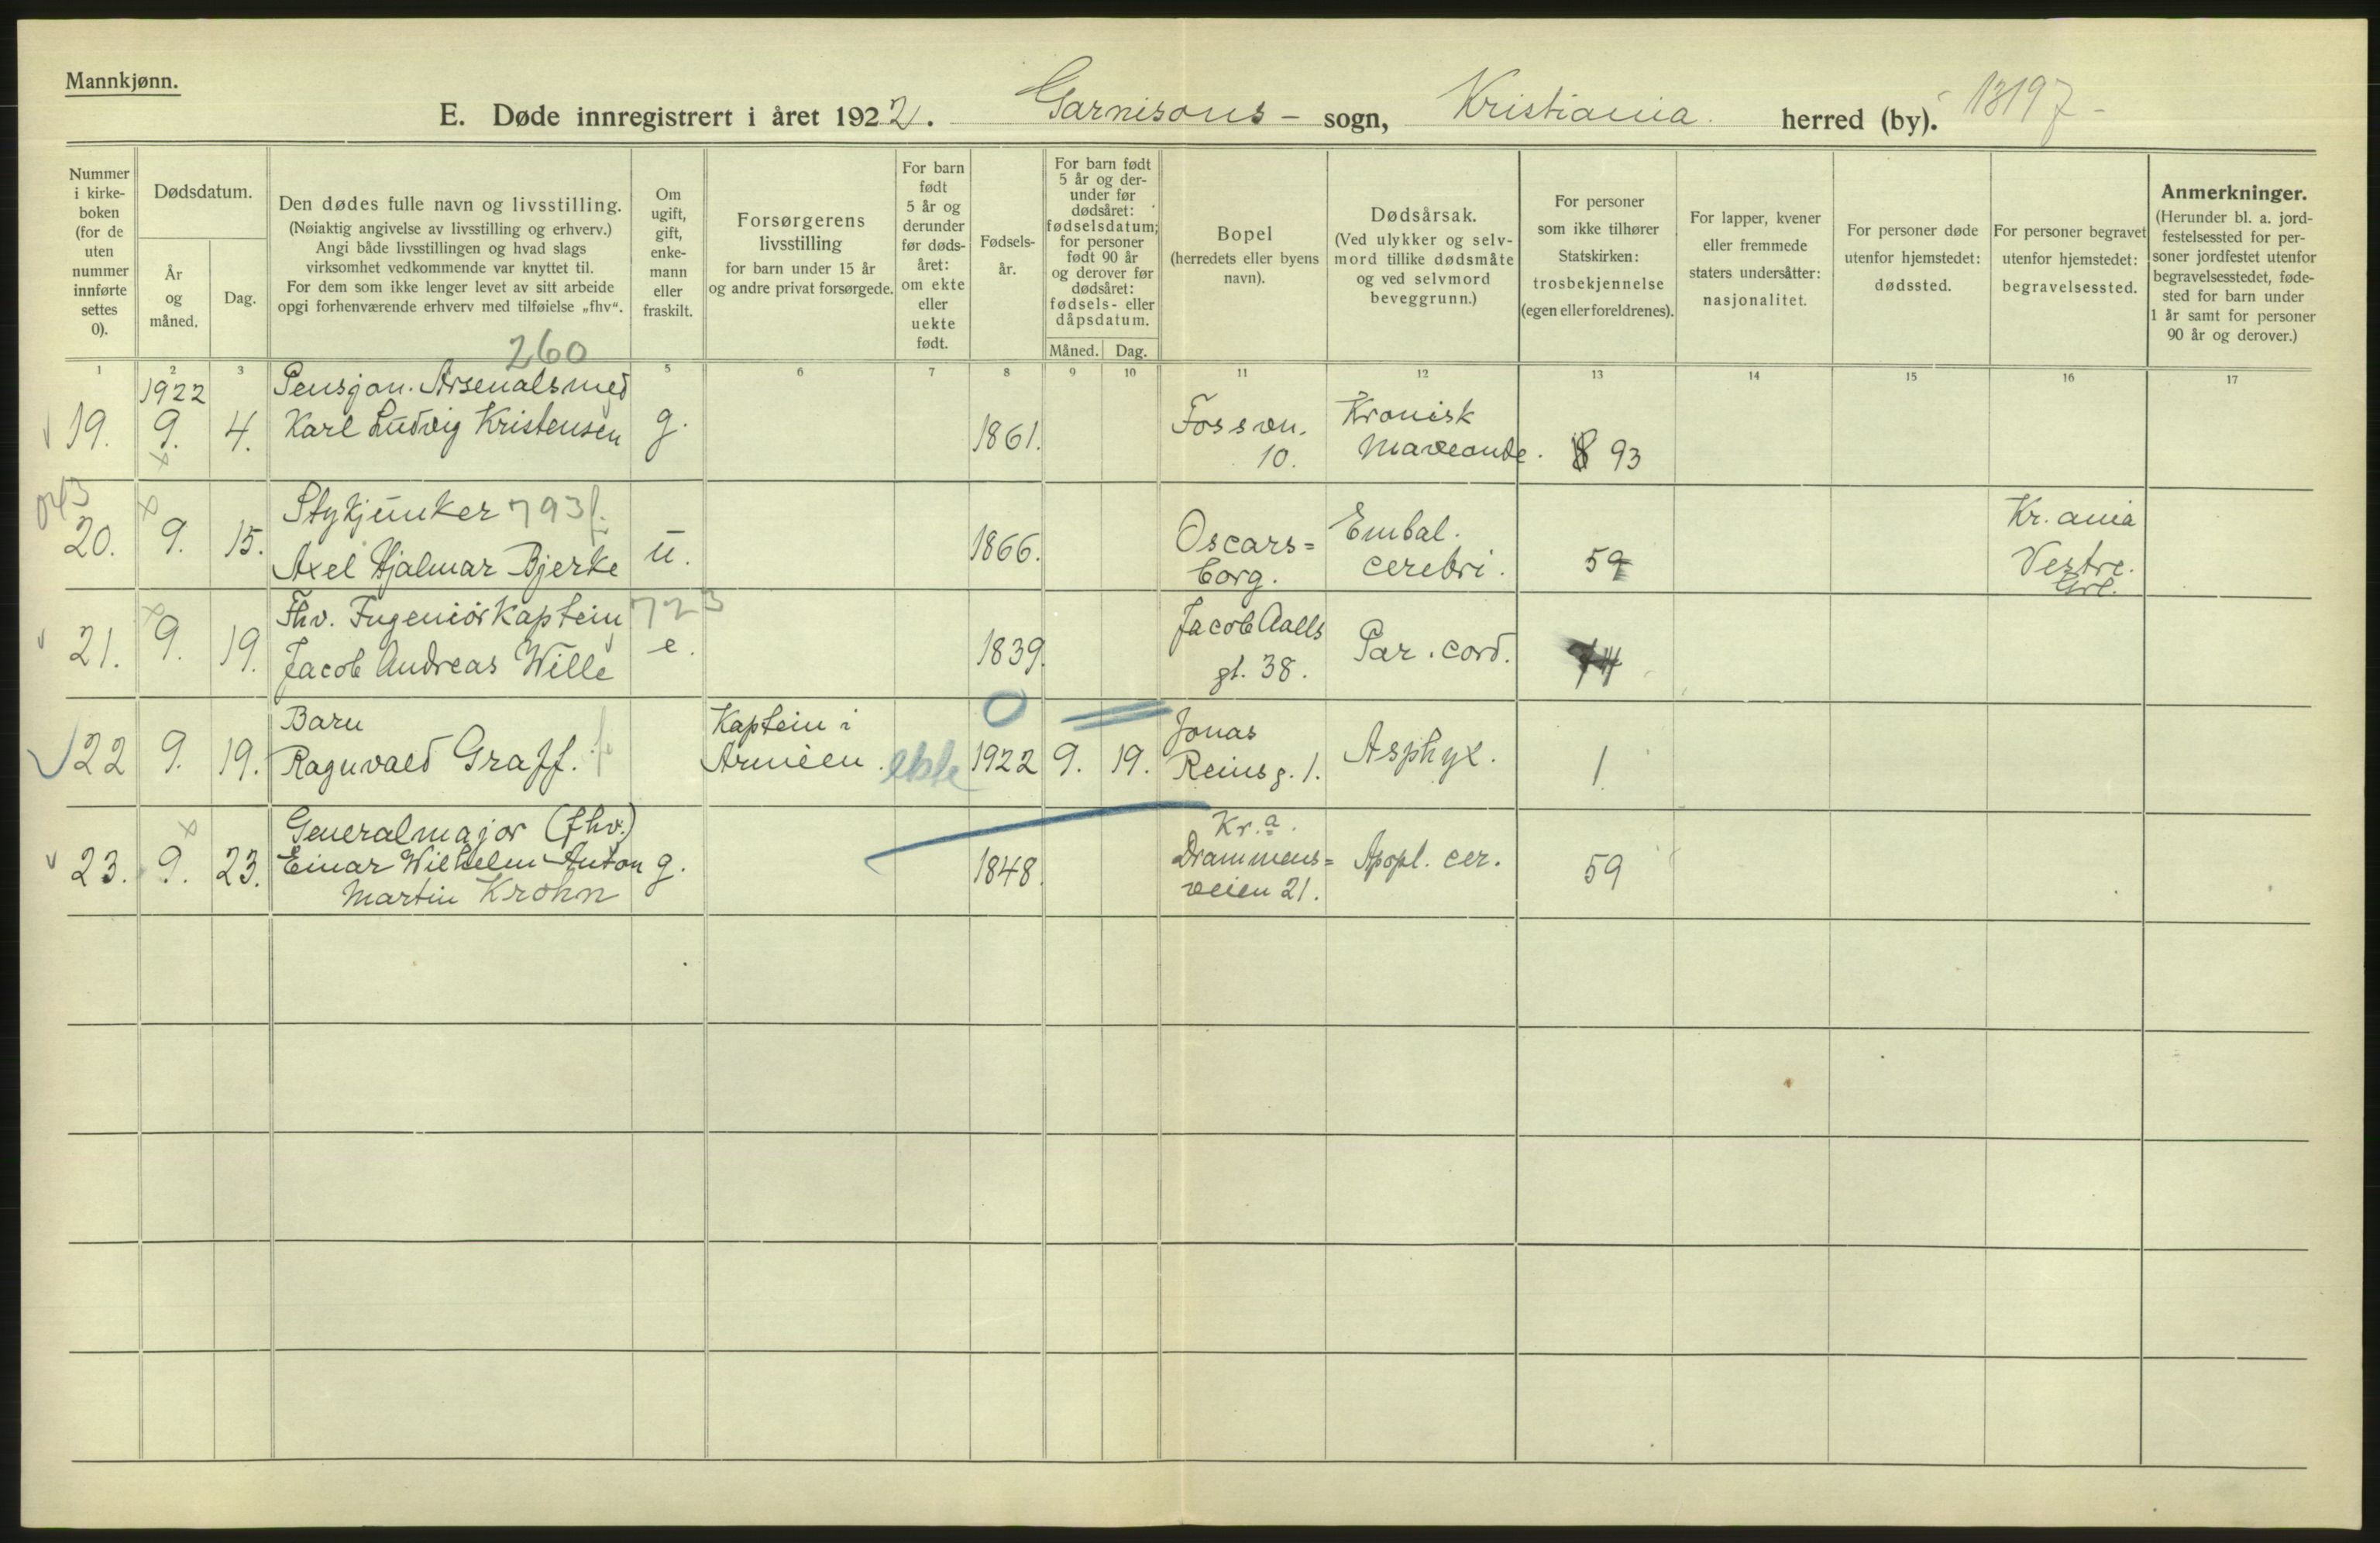 Mannkjønn.
E. Døde innregistrert i året 1922. Garnisons- sogn, Kristiania. herred (by). 13197-
Nummer i kirke-boken (for de uten nummer innførte settes 0).
Dødsdatum.
År og måned.
Dag.
Den dødes fulle navn og livsstilling.
(Nøiaktig angivelse av livsstilling og erhverv.)
Angi både livsstillingen og hvad slags
virksomhet vedkommende var knyttet til.
For dem som ikke lenger levet av sitt arbeide
opgi forhenværende erhverv med tilføielse „fhv“.
Om ugift, gift, enke-mann eller fraskilt.
Forsørgerens
livsstilling
for barn under 15 år
og andre privat forsørgede.
For barn født 5 år og derunder før døds-året: om ekte eller uekte født.
Fødsels-år.
For barn født 5 år og der-under før dødsåret: fødselsdatum; for personer født 90 år og derover før dødsåret: fødsels- eller dåpsdatum.
Måned. Dag.
Bopel
(herredets eller byens
navn).
Dødsårsak.
(Ved ulykker og selv-
mord tillike dødsmåte
og ved selvmord
beveggrunn.)
For personer
som ikke tilhører
Statskirken:
trosbekjennelse
(egen eller foreldrenes).
For lapper, kvener
eller fremmede
staters undersåtter:
nasjonalitet.
For personer døde
utenfor hjemstedet:
dødssted.
For personer begravet
utenfor hjemstedet:
begravelsessted.
Anmerkninger.
(Herunder bl. a. jord-
festelsessted for per-
soner jordfestet utenfor
begravelsesstedet, føde-
sted for barn under
1 år samt for personer
90 år og derover.)
260
1 2 3 5 6 7 8 9 10 11 12 13 14 15 16 17
1922 Pensjon. Arsenalsmed
19. 9. 4. Karl Ludvig Kristensen g. 1861. Fossvn. 10. Kronisk Maveonde. 93
043
Stykjunker 793 f.
20. 9. 15. Axel Hjalmar Bjerke u. 1866. Oscars=borg. Embal. cerebri. 59 Kr.ania Vestre. Grl.
Fhv. Ingeniørkaptein 723
21. 9. 19. Jacob Andreas Wille e. 1839. Jacob Aalls gt. 38. Par. cord.
Barn
22 9. 19. Ragnvald Graff. Kaptein i Armeen. ekte 0 1922 9. 19. Jonas Reinsg. 1. Asphyx. 1
Generalmajor (fhv.)
23. 9. 23. Einar Wilhelm Anton Martin Krohn g. 1848. Kr.a. Drammens=veien 21. Apopl. cer. 59